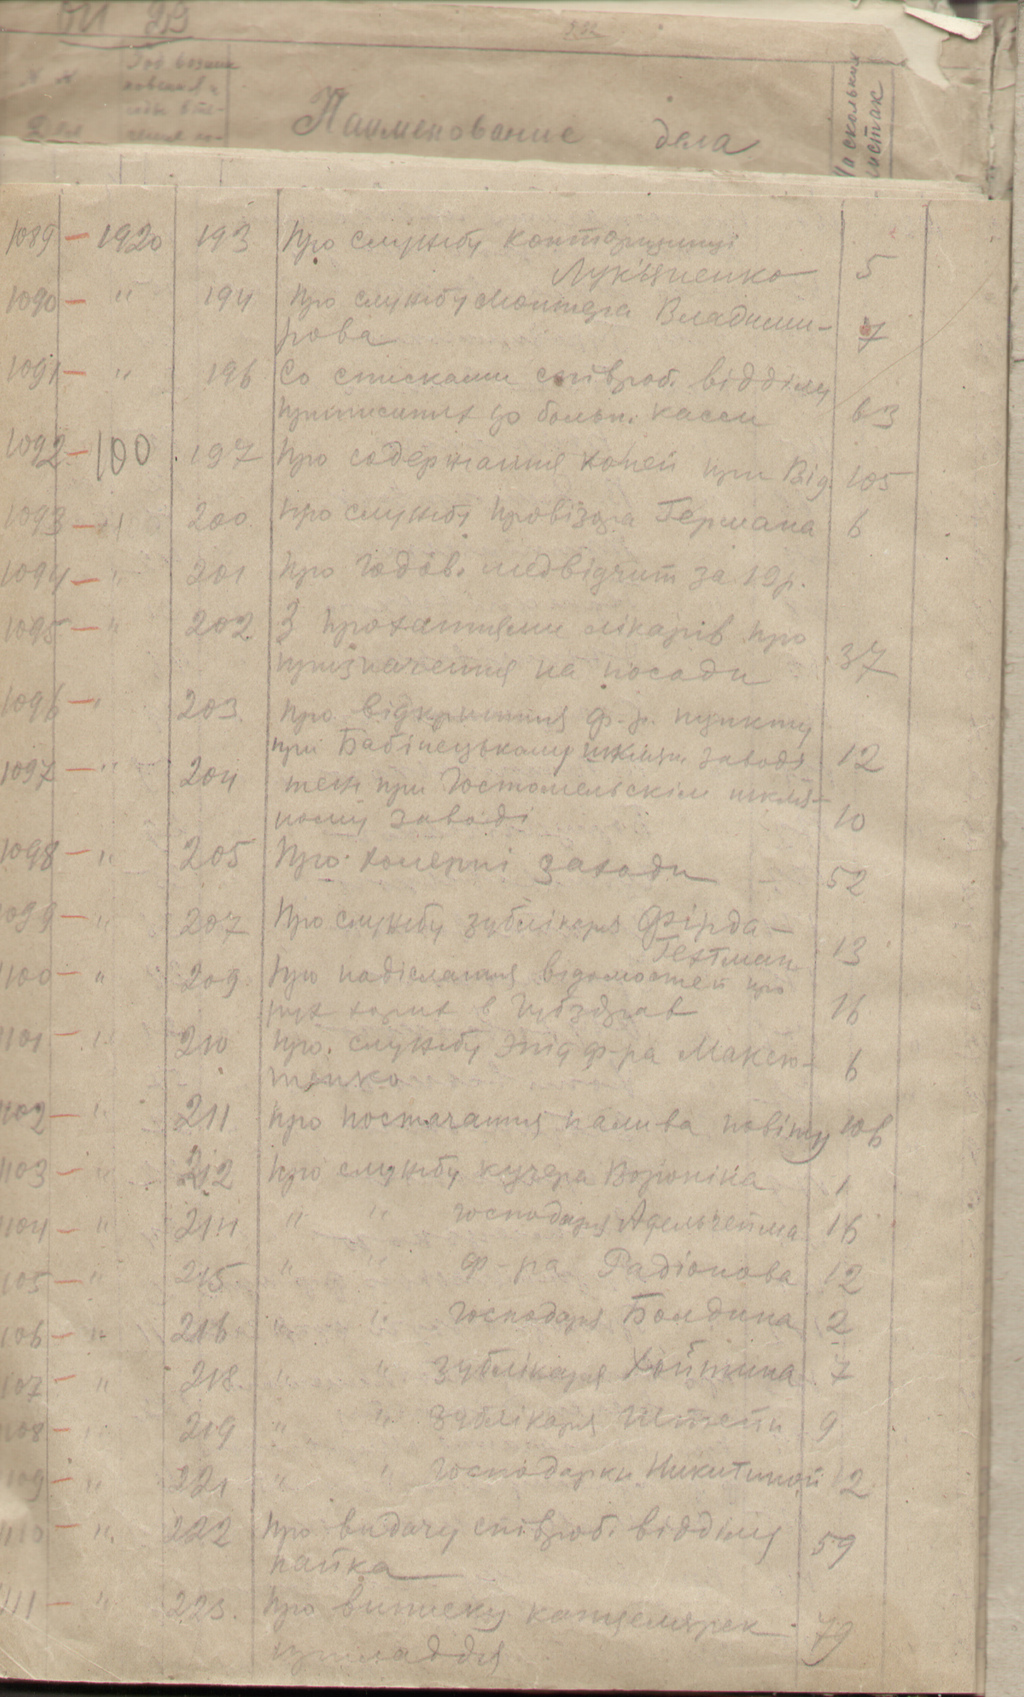 ОП 29
Год возник
Наименование дела
На скольких листах
1089 — 1920 193 Про службу конторщиці
Лук'яненко 5
1090 — " 194 Про службу монтера Владими-
рова 7
1091 — " 196 Со списками співроб. відділу
приписаних до больн. касси 63
1092 — 100 197 Про содержання коней при Від 105
1093 — " 200 Про службу провізора Германа 6
1094 — " 201 Про годов. медвідчит за 19 р.
1095 — " 202 З проханнями лікарів про
призначення на посади 37
1096 — " 203 Про відкриття ф-р. пункту
при Бабінецькому шклян. заводі 12
1097 — " 204 теж при Гостомельскім шкля-
ному заводі 10
1098 — " 205 Про холерні заходи 52
1099 — " 207 Про службу зублікаря Фірда-
Гехтман 13
1100 — " 209 Про надіслання відомостей про
рух хорих в Губздрав 16
1101 — " 210 Про службу эпід ф-ра Максю-
тенко 6
1102 — " 211 Про постачання палива повіту 106
1103 — " 212 Про службу кучера Вороніна 1
1104 — " 214 " " господаря Адельгейма 16
1105 — " 215 " " ф-ра Радіонова 12
1106 — " 216 " " господаря Болдина 2
1107 — " 218 " " зублікаря Хойтина 7
1108 — " 219 " " зублікаря 9
1109 — " 221 " " господарки Никитиной 2
1110 — " 222 Про видачу співроб. відділу
пайка 59
1111 — " 223 Про виписку канцелярск
приладдя 79